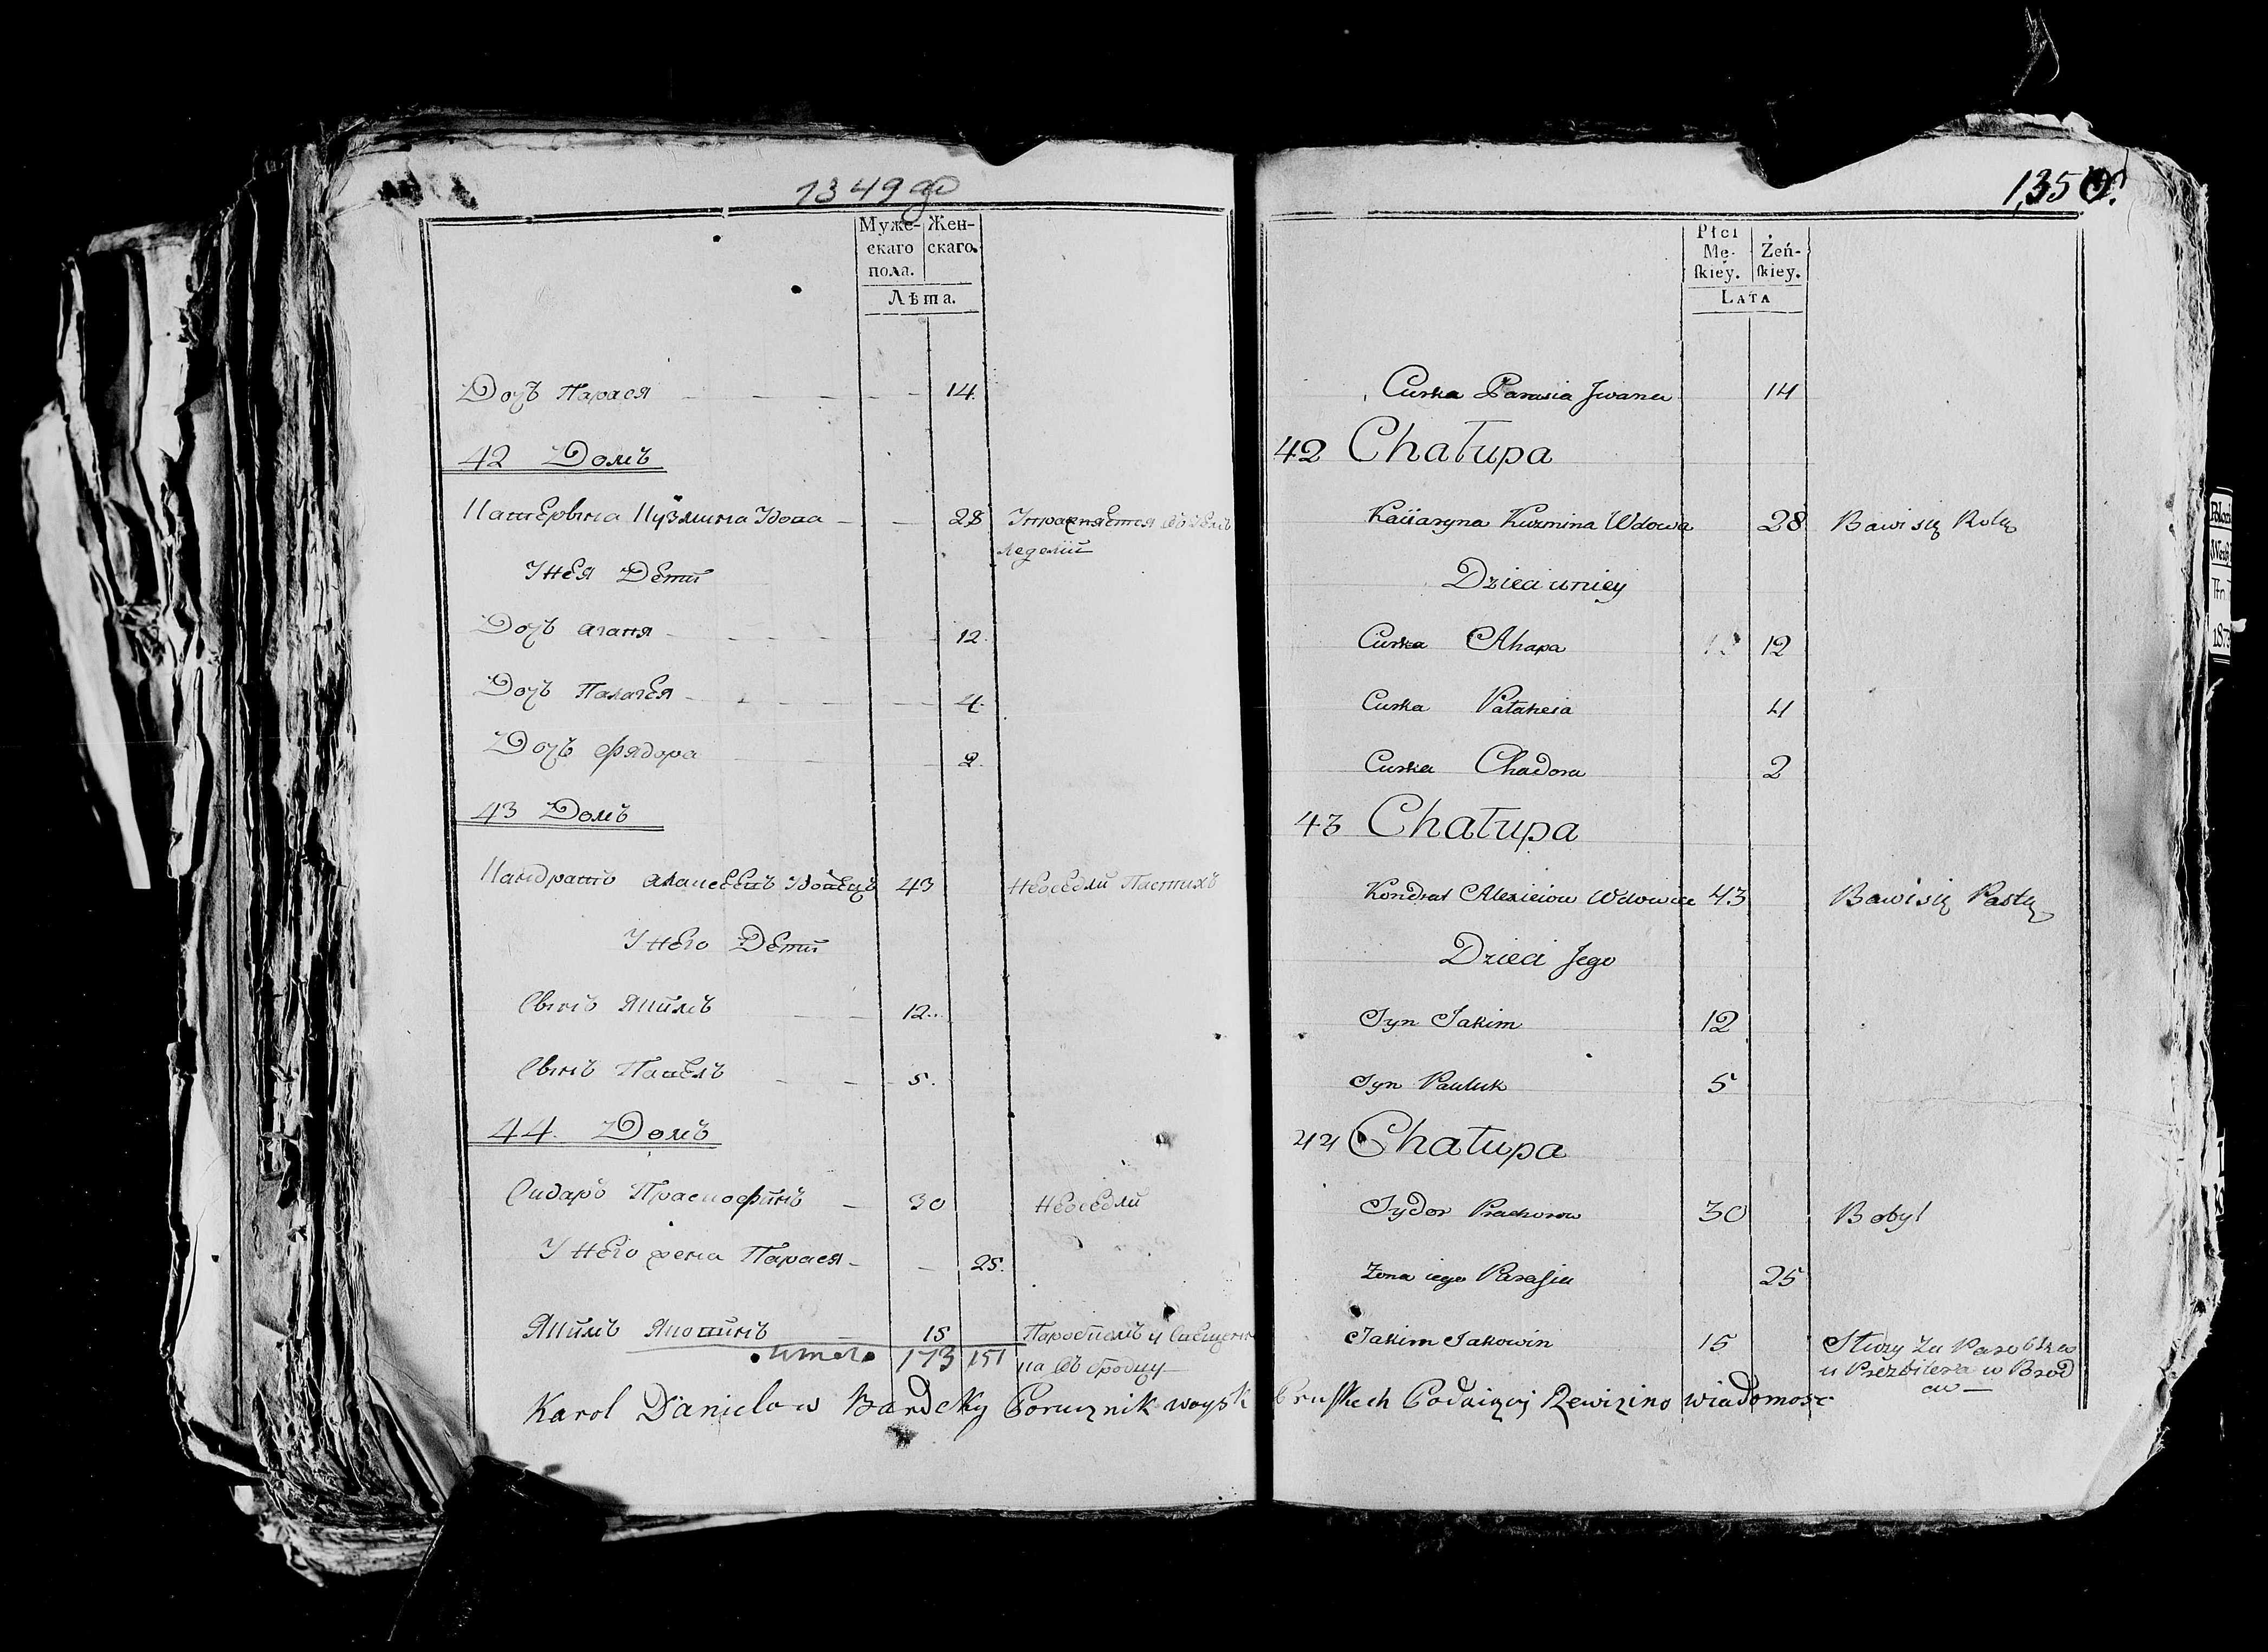 1349
Муже-
скаго
пола.
Жен-
скаго.
Лѣта.
Дочь Парася 14
42 Домъ
Катерына Кузмина Удова 28
У нея Дети
Дочь Агапя 12
Дочь Палагея 4
Дочь Фядора 2
43 Домъ
Кандратъ Алексеевъ Удовецъ 43
У него Дети
Сынъ Якимъ 12
Сынъ Павелъ 5
44 Домъ
Сидаръ 30
У него жена Парася 25
Якимъ Яковинъ 15
итого 173 151
1350
Płci
Mę-
ſkiey.
Żeń-
ſkiey.
LATA
Curka Parasia Jwana 14
42 Chałupa
Katiaryna Kuzmina Wdowa 28 Bawi się Rolą
Dzieci u niey
Curka Ahapa 12
Curka Pałaheia 4
Curka Chadora 2
43 Chałupa
Kondrat Alexieiow Wdowiec 43 Bawi się Pastą
Dzieci Jego
Syn Jakim 12
Syn Pauluk 5
44 Chałupa
Sydor Prachorow 30 Bobyl
Żona iego Parasia 25
Jakim Jakowin 15 Służy za Parobka
u Prezbitera w Brod
cu
Karol Danielow Bardcky Porucznik woysk Pruskich Podaiący Rewizino wiadomosc